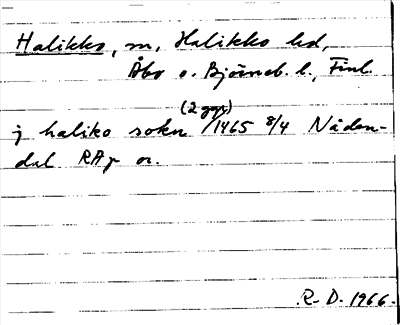 Halikko, sn, Halikko hd,
Åbo o. Björneb. l., Finl.
(2 ggr)
j haliko sokn /1465 8/4 Nåden-
dal RAp or.
R- D. 1966.